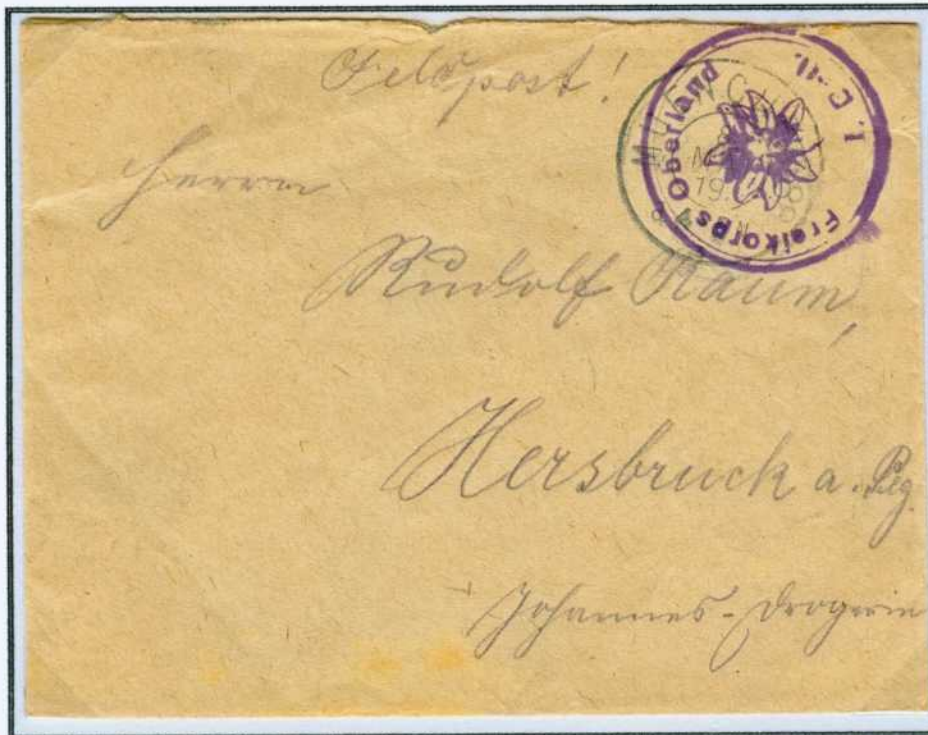 Feldpost!
Freikorps Oberland
I.
MÜNCH
19
Herrn
Rudolf Raum,
Hersbruck a. Peg.
Johannes-Drogerie